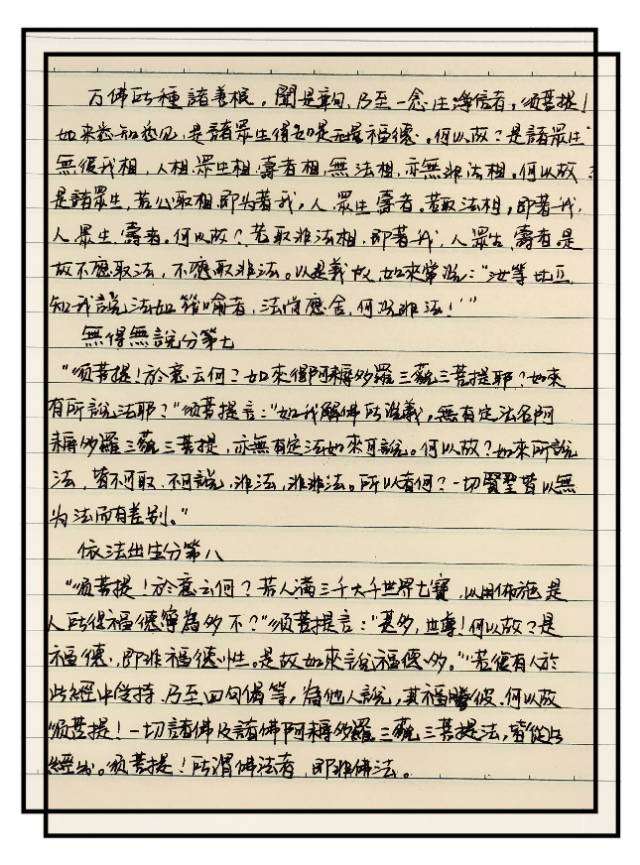 万佛所種諸善根。聞是章句,乃至一念生淨信者,須菩提!
如來悉知悉見,是諸眾生得如是无量福德。何以故?是諸眾生
無復我相,人相.眾生相.壽者相,無法相,亦無非法相。何以故?
是諸眾生,若心取相,即为著我,人.眾生.壽者。若取法相,即著我,
人眾生,壽者。何以故?若取非法相,即著我,人眾生,壽者是
故不應取法,不應取非法。以是義故,如來常說:“汝等比丘
知我說法如筏喻者,法尚應舍,何況非法!'”
無得無說分第七
“須菩提!於意云何?如來得阿耨多羅三藐三菩提耶?如來
有所說法耶?”須菩提言:“如我解佛所說義,無有定法名阿
耨多羅三藐三菩提,亦無有定法如來可說。何以故?如來所說
法,皆不可取.不可說,非法,非非法。所以者何?一切賢聖皆以無
为法而有差别。”
依法出生分第八
“須菩提!於意云何?若人滿三千大千世界七寶,以用佈施是
人所得福德寧為多不?”須菩提言:“甚多,世尊!何以故?是
福德,即非福德性。是故如來說福德多。”“若復有人於
此經中受持.乃至四句偈等,為他人說,其福勝彼.何以故
須菩提!一切諸佛及諸佛阿耨多羅三藐三菩提法,皆從此
經出。須菩提!所謂佛法者,即非佛法。